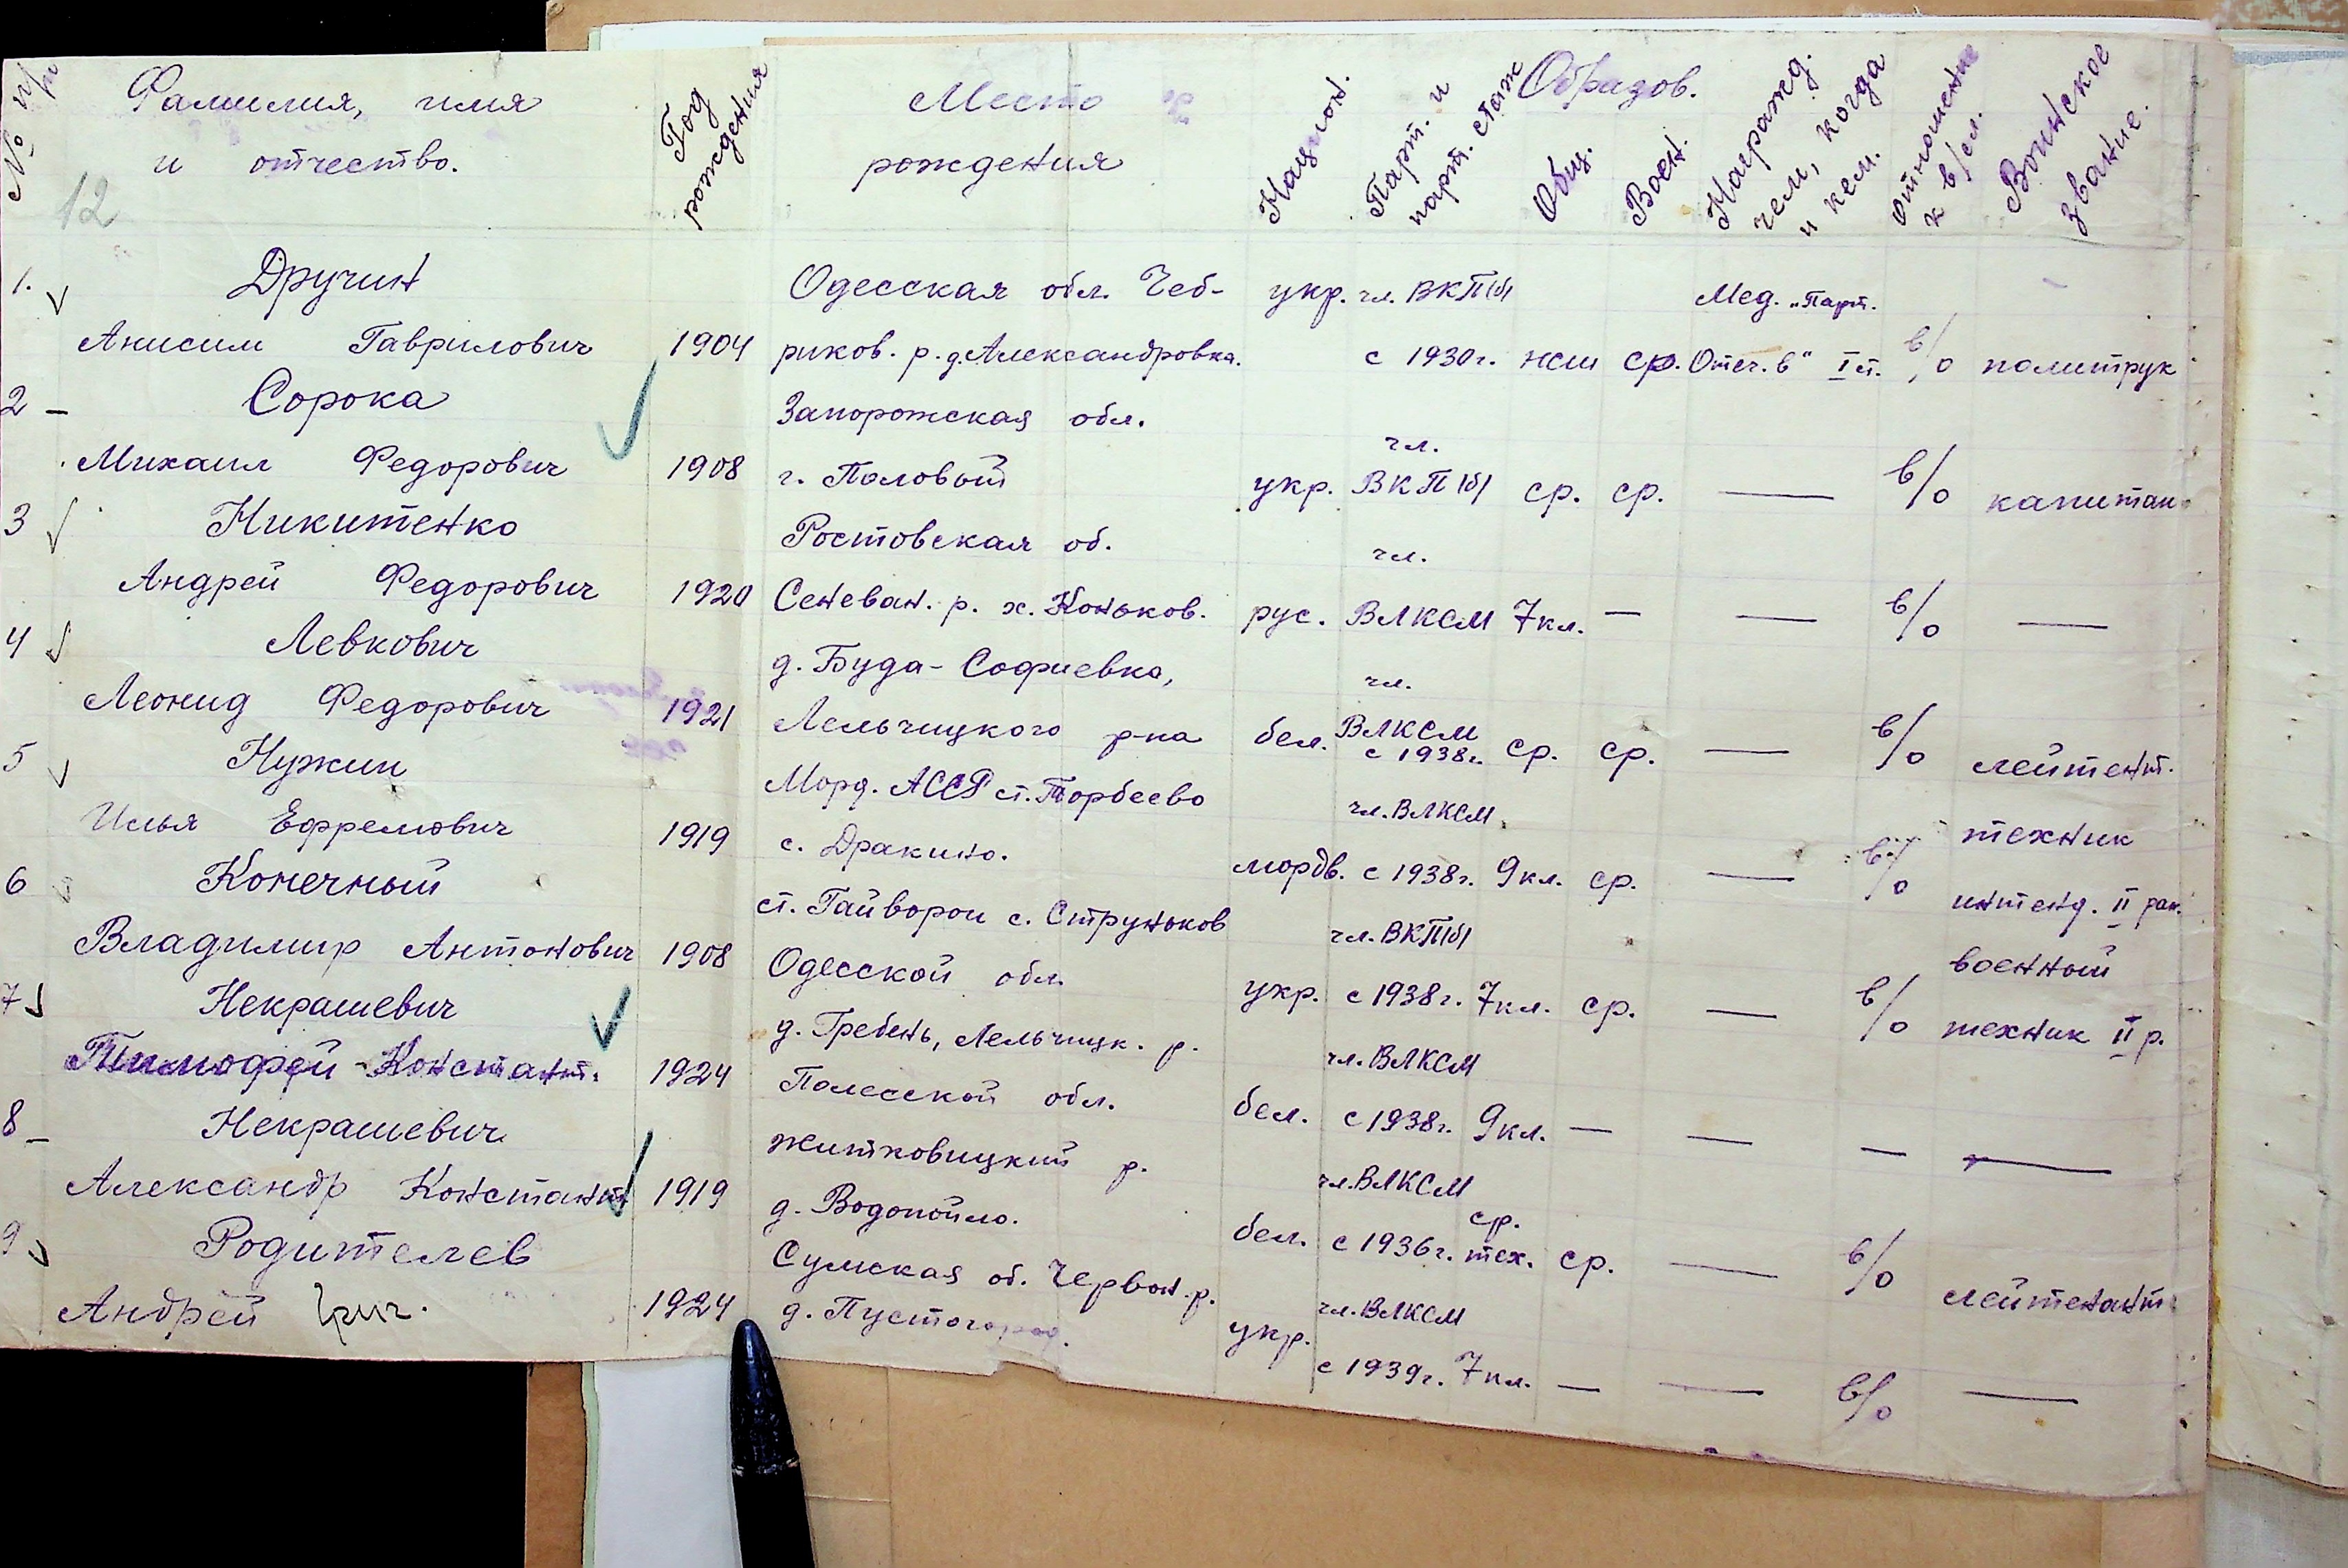 № п/п Фамилия, имя и отчество. Год рождения Место рождения Национ. Парт. и парт. стаж Образов. Общ. Воен. Награжд. чем, когда и кем. Отношение к в/сл. Воинское звание.
12
1. Дручин Одесская обл. Чеб- укр. чл. ВКП(б) Мед. „Парт.
Анисим Гаврилович 1904 риков. р. д. Александровка. с 1930г. нсш ср. Отеч. в" I ст. в/о политрук
2 – Сорока Запорожская обл. чл.
Михаил Федорович 1908 г. Пологый укр. ВКП(б) ср. ср. — в/о капитан
3 Никитенко Ростовская об. чл.
Андрей Федорович 1920 Сеневан. р. х. Коньков. рус. ВЛКСМ 7кл. — — в/о —
4 Левкович д. Буда-Софиевка, чл.
Леонид Федорович 1921 Лельчицкого р-на бел. ВЛКСМ с 1938г. ср. ср. — в/о лейтент.
5 Нужин Морд. АССР ст. Торбеево чл. ВЛКСМ техник
Илья Ефремович 1919 с. Дракино. мордв. с 1938г. 9кл. ср. — в/о интенд. II ран.
6 Конечный ст. Гайворон с. Струньков чл. ВКП(б) военный
Владимир Антонович 1908 Одесской обл. укр. с 1938г. 7кл. ср. — в/о техник II р.
7 Некрашевич д. Гребень, Лельчицк. р. чл. ВЛКСМ
Тимофей Констант. 1924 Полесской обл. бел. с 1938г. 9кл. — — — —
8 – Некрашевич Житковицкий р. чл. ВЛКСМ ср.
Александр Констант 1919 д. Водопойло. бел. с 1936г. тех. ср. — в/о лейтенант
9 Родителев Сумская об. Червон. р. чл. ВЛКСМ
Андрей Григ. 1924 д. Пустогород. укр. с 1939г. 7кл. — — в/о —